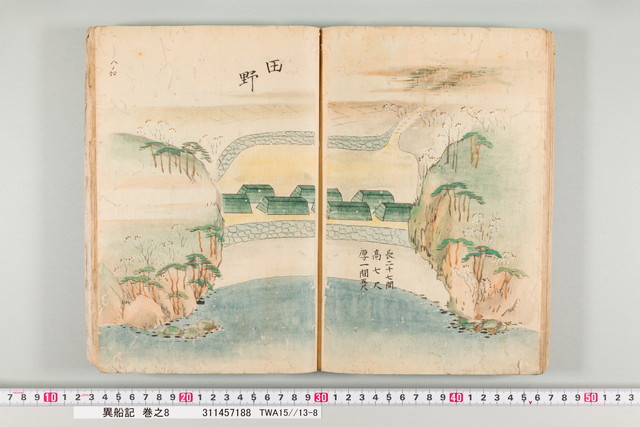 田野
長二十七間
高七尺
厚一間五尺
7 8 9 10 1 2 3 4 5 6 7 8 9 20 1 2 3 4 5 6 7 8 9 30 1 2 3 4 5 6 7 8 9 40 1 2 3 4 5 6 7 8 9 50 1 2 3
異船記 巻之8 311457188 TWA15//13-8